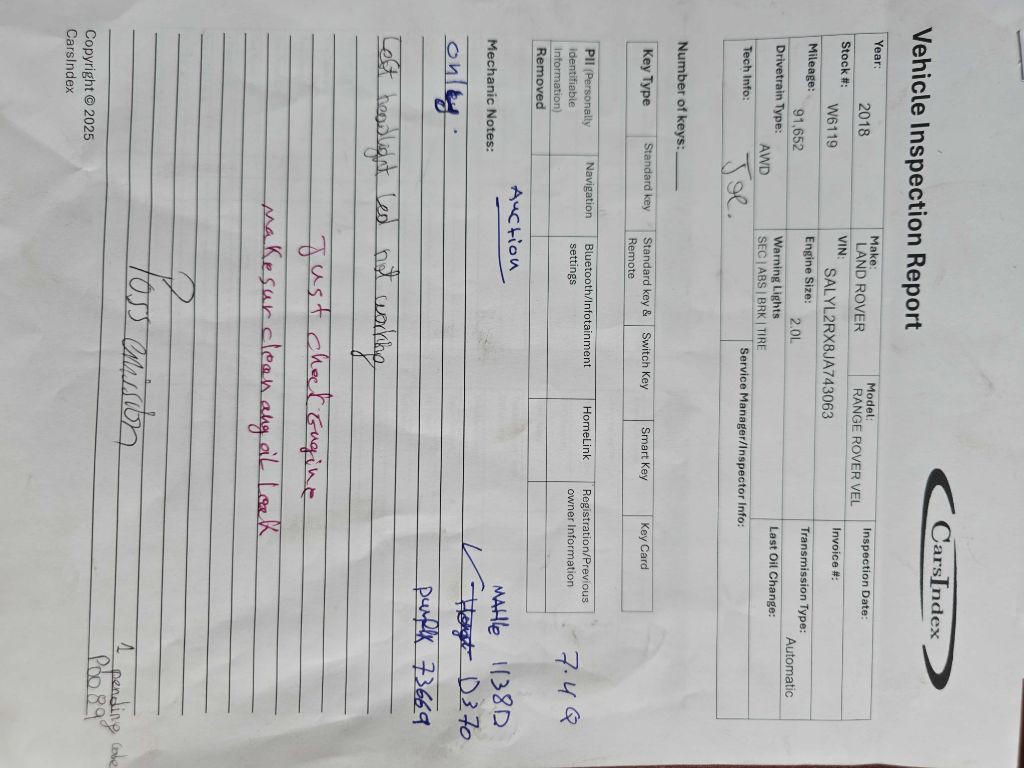 Vehicle Inspection Report
CarsIndex
Year: 2018
Make: LAND ROVER
Model: RANGE ROVER VEL
Inspection Date:
Stock #: W6119
VIN: SALYL2RX8JA743063
Invoice #:
Mileage: 91,652
Engine Size: 2.0L
Transmission Type: Automatic
Drivetrain Type: AWD
Warning Lights
SEC | ABS | BRK | TIRE
Last Oil Change:
Tech Info:
Service Manager/Inspector Info:
Number of keys:
Key Type
Standard key
Standard key & Remote
Switch Key
Smart Key
Key Card
PII (Personally Identifiable Information) Removed
Navigation
Bluetooth/Infotainment settings
HomeLink
Registration/Previous owner Information
7.4 Q
Auction
Mechanic Notes:
MAHle 1138D
only.
D370
purple 73669
Left headlight Led not working
Just check Engine
make sur clean any oil Leak
Pass emission
1 pending code
P0089
Copyright © 2025
CarsIndex